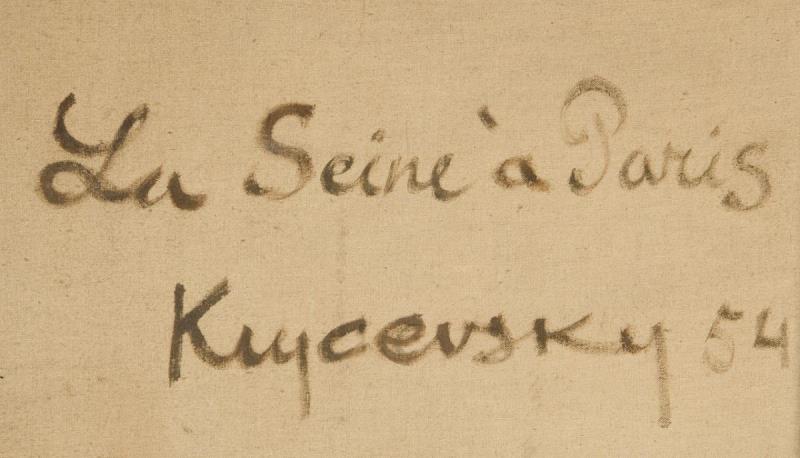 La Seine à Paris
Krycevsky 54